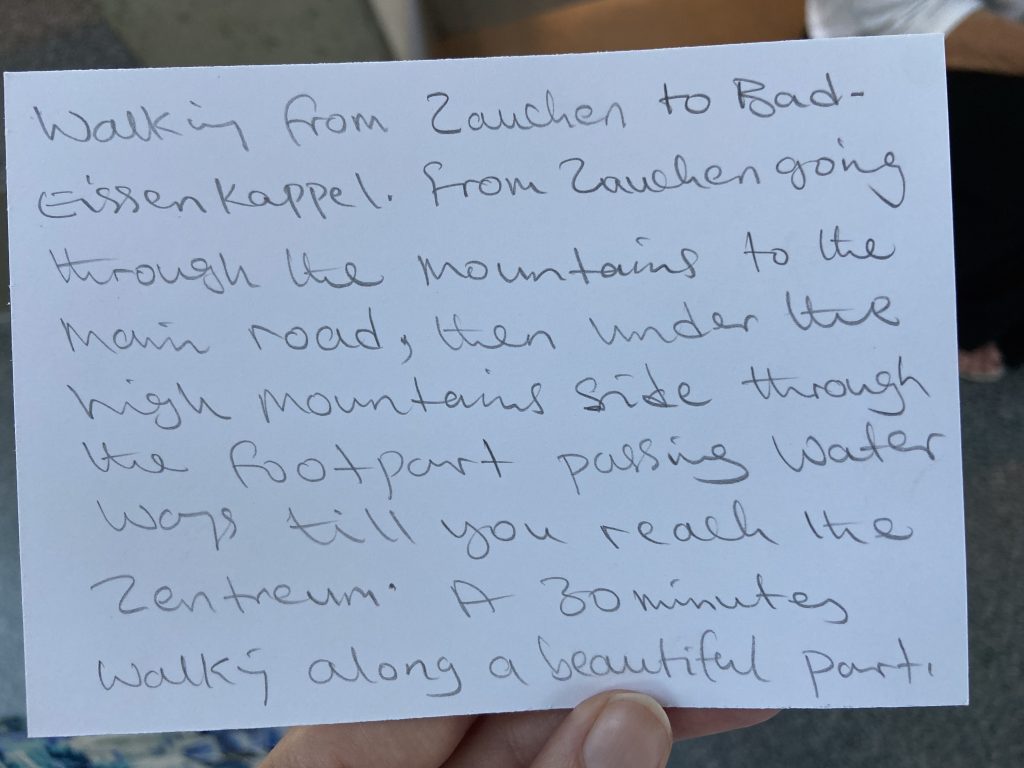 Walking from Zauchen to Bad-
Eissenkappel. From Zauchen going
through the mountains to the
main road, then under the
high mountains side through
the footpart passing water
ways till you reach the
Zentreum. A 30 minutes
walky along a beautiful part.